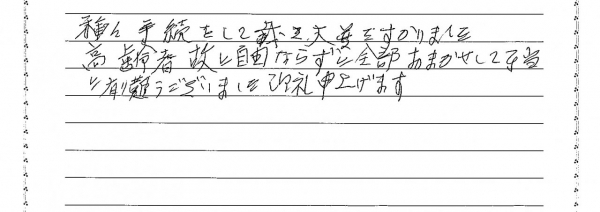 種々手続をして戴き大変たすかりました
高齢者故に自由ならずに全部おまかせして本当
に有難うございました 御礼申上げます